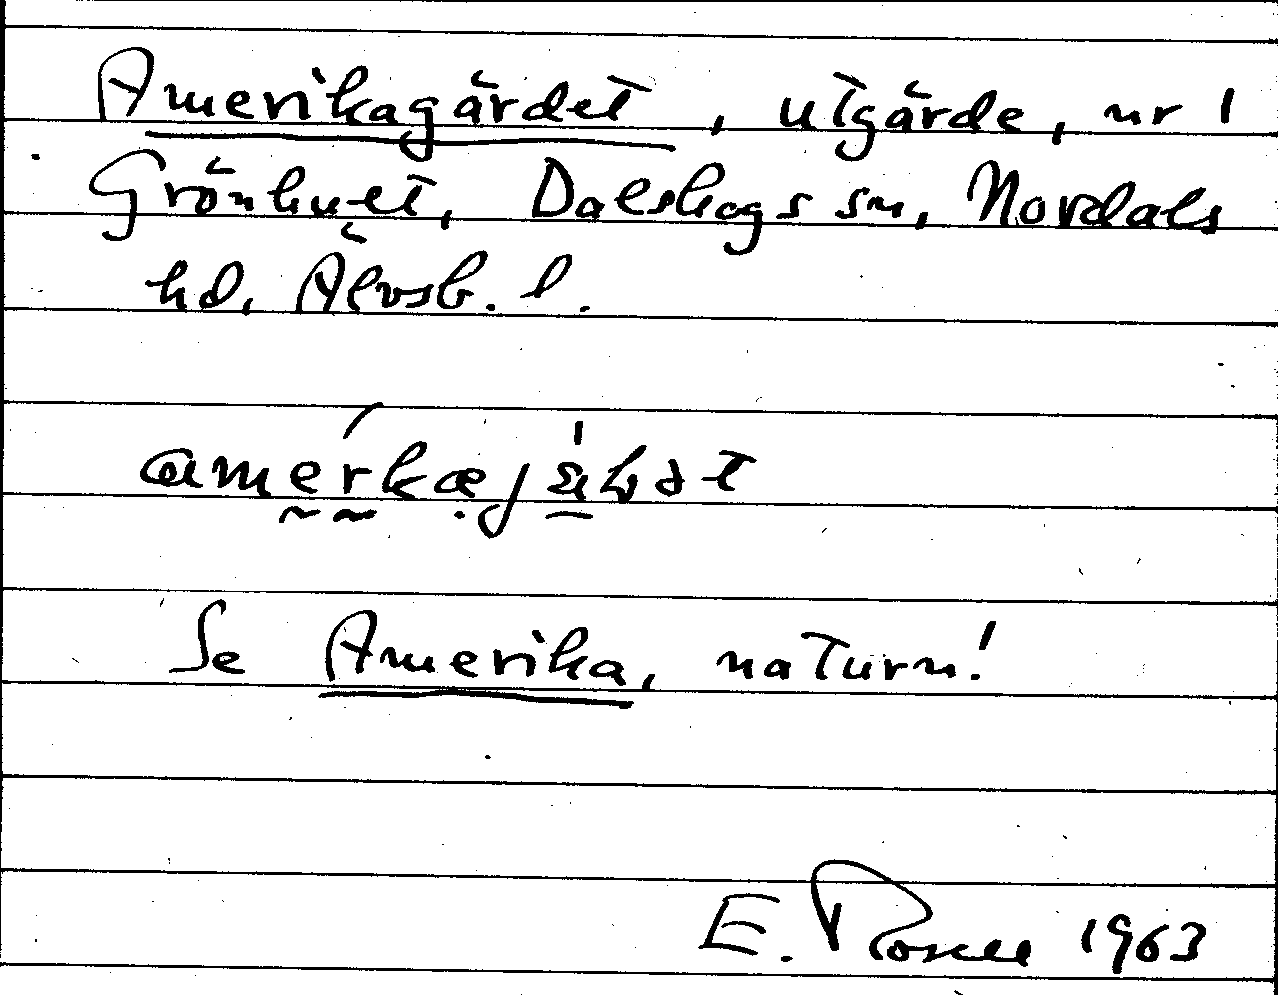 Amerikagärdet, utgärde, nr 1
Grönhult, Dalskogs sn, Nordals
hd, Älvsb. l.
Se Amerika, naturn!
E. Rosell 1963